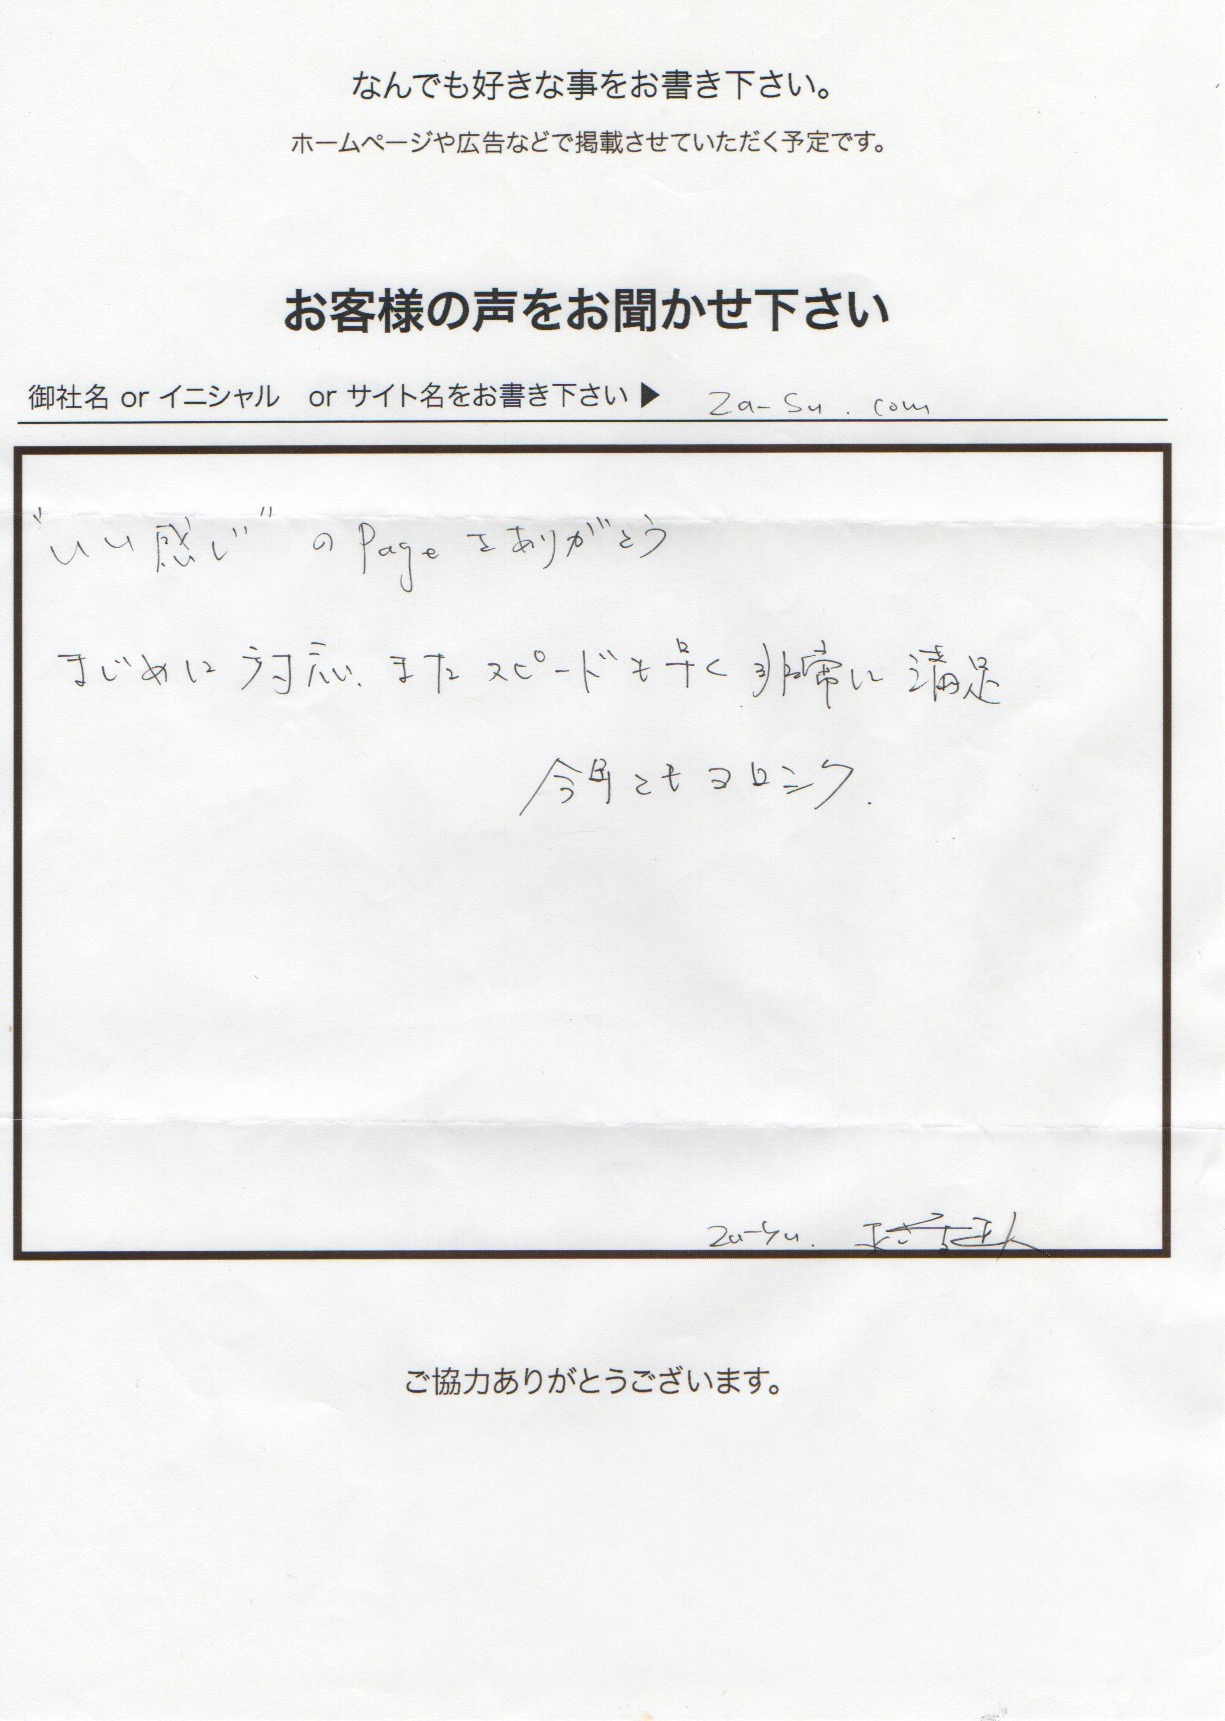 なんでも好きな事をお書き下さい。
ホームページや広告などで掲載させていただく予定です。
お客様の声をお聞かせ下さい
御社名 or イニシャル or サイト名をお書き下さい▶ za-su.com
"いい感じ"のPageをありがとう
まじめに対応、またスピードも早く非常に満足
今后ともヨロシク.
za-su.
ご協力ありがとうございます。